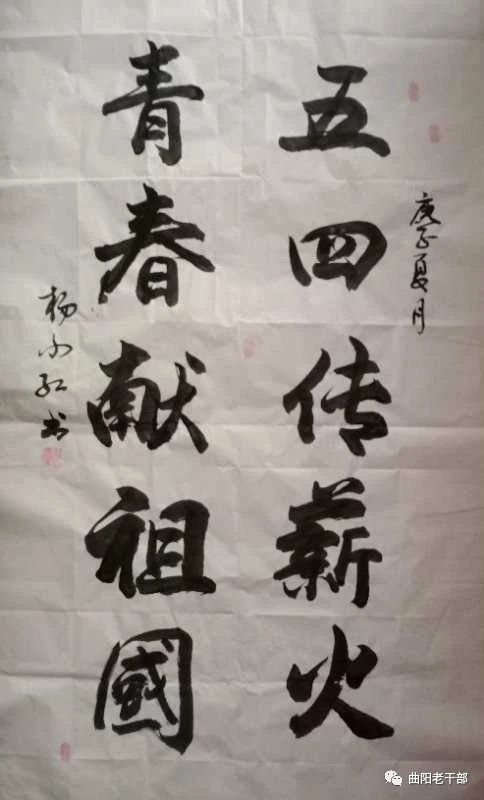 庚子夏月
五四传薪火
青春献祖國
杨小红书
曲阳老干部